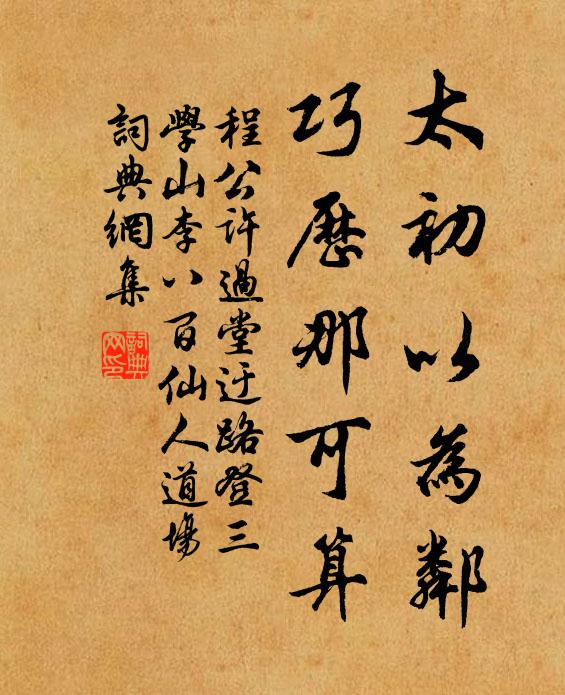 太初以為鄰
巧歷那可算
程公许過堂迂路登三
學山李八百仙人道場
詞典網集
詞典网印